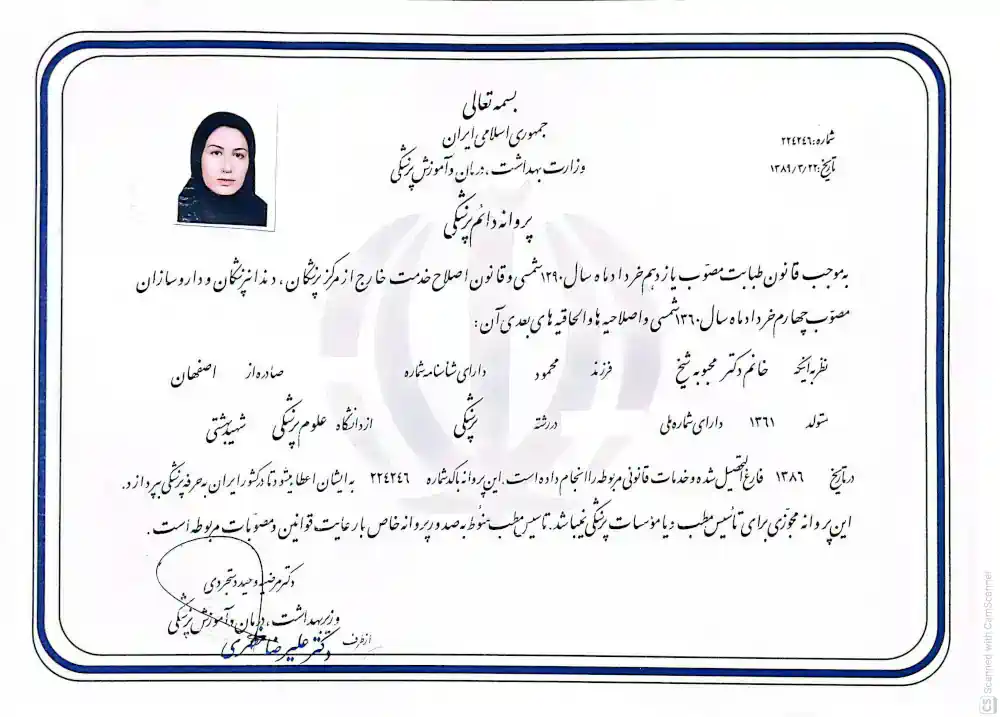 بسمه تعالی
جمهوری اسلامی ایران
وزارت بهداشت، درمان و آموزش پزشکی
شماره: ۲۲۴۲۴۶
تاریخ: ۱۳۸۹/۳/۲۲
پروانه دائم پزشکی
به موجب قانون طبابت مصوّب یازدهم خرداد ماه سال ۱۲۹۰ شمسی و قانون اصلاح خدمت خارج از مرکز پزشکان، دندانپزشکان و داروسازان
مصوّب چهارم خرداد ماه سال ۱۳۶۰ شمسی و اصلاحیه ها و الحاقیه های بعدی آن:
نظر به اینکه خانم دکتر محبوبه شیخ فرزند محمود دارای شناسنامه شماره صادره از اصفهان
متولد ۱۳۶۱ دارای شماره ملی در رشته پزشکی از دانشگاه علوم پزشکی شهید بهشتی
در تاریخ ۱۳۸۶ فارغ التحصیل شده و خدمات قانونی مربوطه را انجام داده است. این پروانه با کد شماره ۲۲۴۲۴۶ به ایشان اعطا میشود تا در کشور ایران به حرفه پزشکی بپردازد.
این پروانه مجوّزی برای تأسیس مطب و یا مؤسسات پزشکی نمیباشد. تاسیس مطب منوُط به صدور پروانه خاص با رعایت قوانین و مصوبات مربوطه است.
دکتر مرضیه وحید دستجردی
وزیر بهداشت، درمان و آموزش پزشکی
از طرف
دکتر علیرضا
CS Scanned with CamScanner